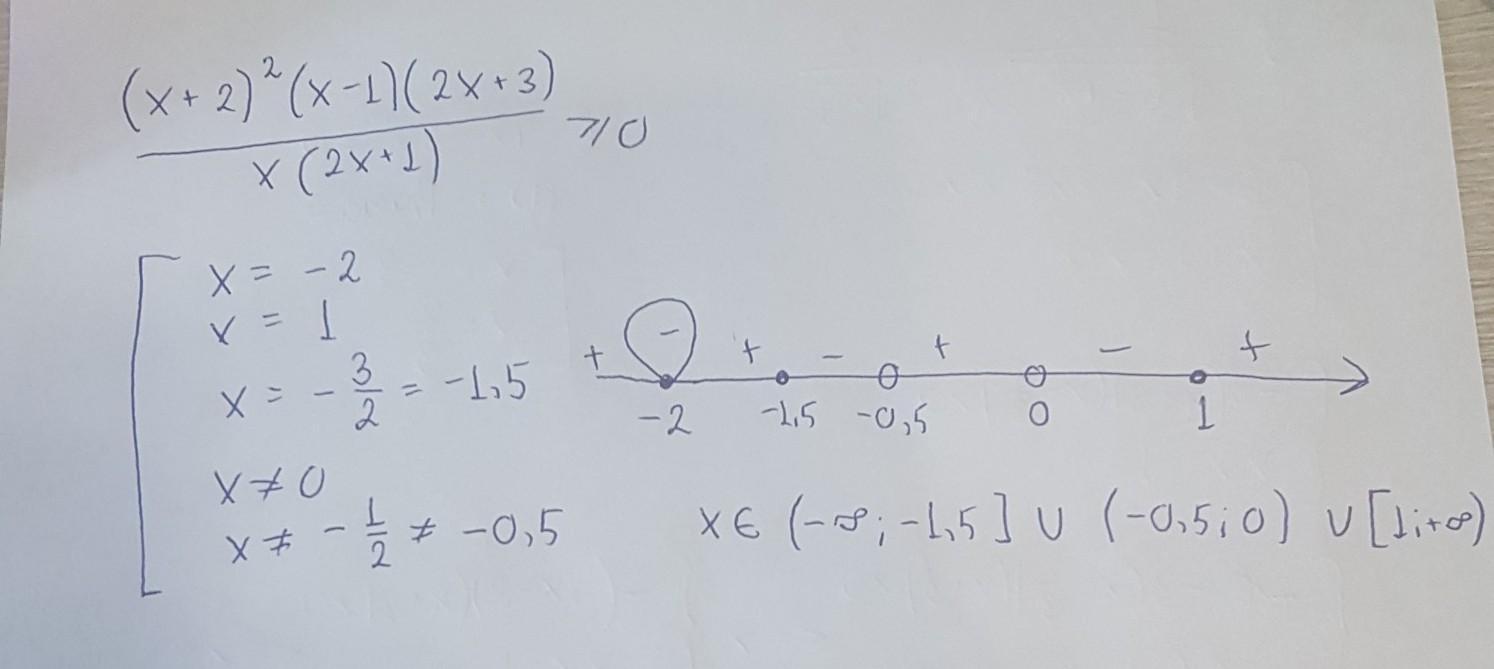 (x+2)²(x-1)(2x+3)
x(2x+1)
⩾0
x = -2
x = 1
x = - 3/2 = -1,5
x ≠ 0
x ≠ - 1/2 ≠ -0,5
+ - + - + - +
-2 -1,5 -0,5 0 1
x ∈ (-∞; -1,5] ∪ (-0,5; 0) ∪ [1; +∞)